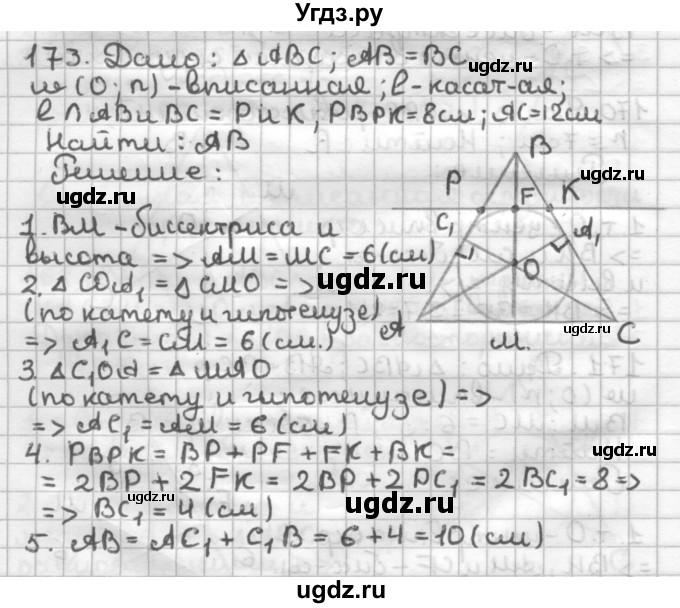 Угдз.ру
173. Дано: △ ABC; AB = BC
w (O; r) - вписанная; l - касат-ая;
l ∩ AB и BC = P и K, P_BPK = 8см; AC = 12см
Найти: AB
Решение:
1. BM - биссектриса и
высота => AM = MC = 6 (см)
2. △ COA₁ = △ CMO =>
(по катету и гипотенузе)
=> A₁C = CM = 6 (см.)
3. △ C₁OA = △ MAO
(по катету и гипотенузе) =>
=> AC₁ = AM = 6 (см)
4. PBPK = BP + PF + FK + BK =
= 2BP + 2FK = 2BP + 2PC₁ = 2BC₁ = 8 =>
=> BC₁ = 4 (см)
5. AB = AC₁ + C₁B = 6 + 4 = 10 (см)
B
P F K
C₁ A₁
O
A M. C
ugdz.ru
ugdz.ru
ugdz.ru
ugdz.ru
ugdz.ru
ugdz.ru
ugdz.ru
ugdz.ru
ugdz.ru
ugdz.ru
ugdz.ru
ugdz.ru
ugdz.ru